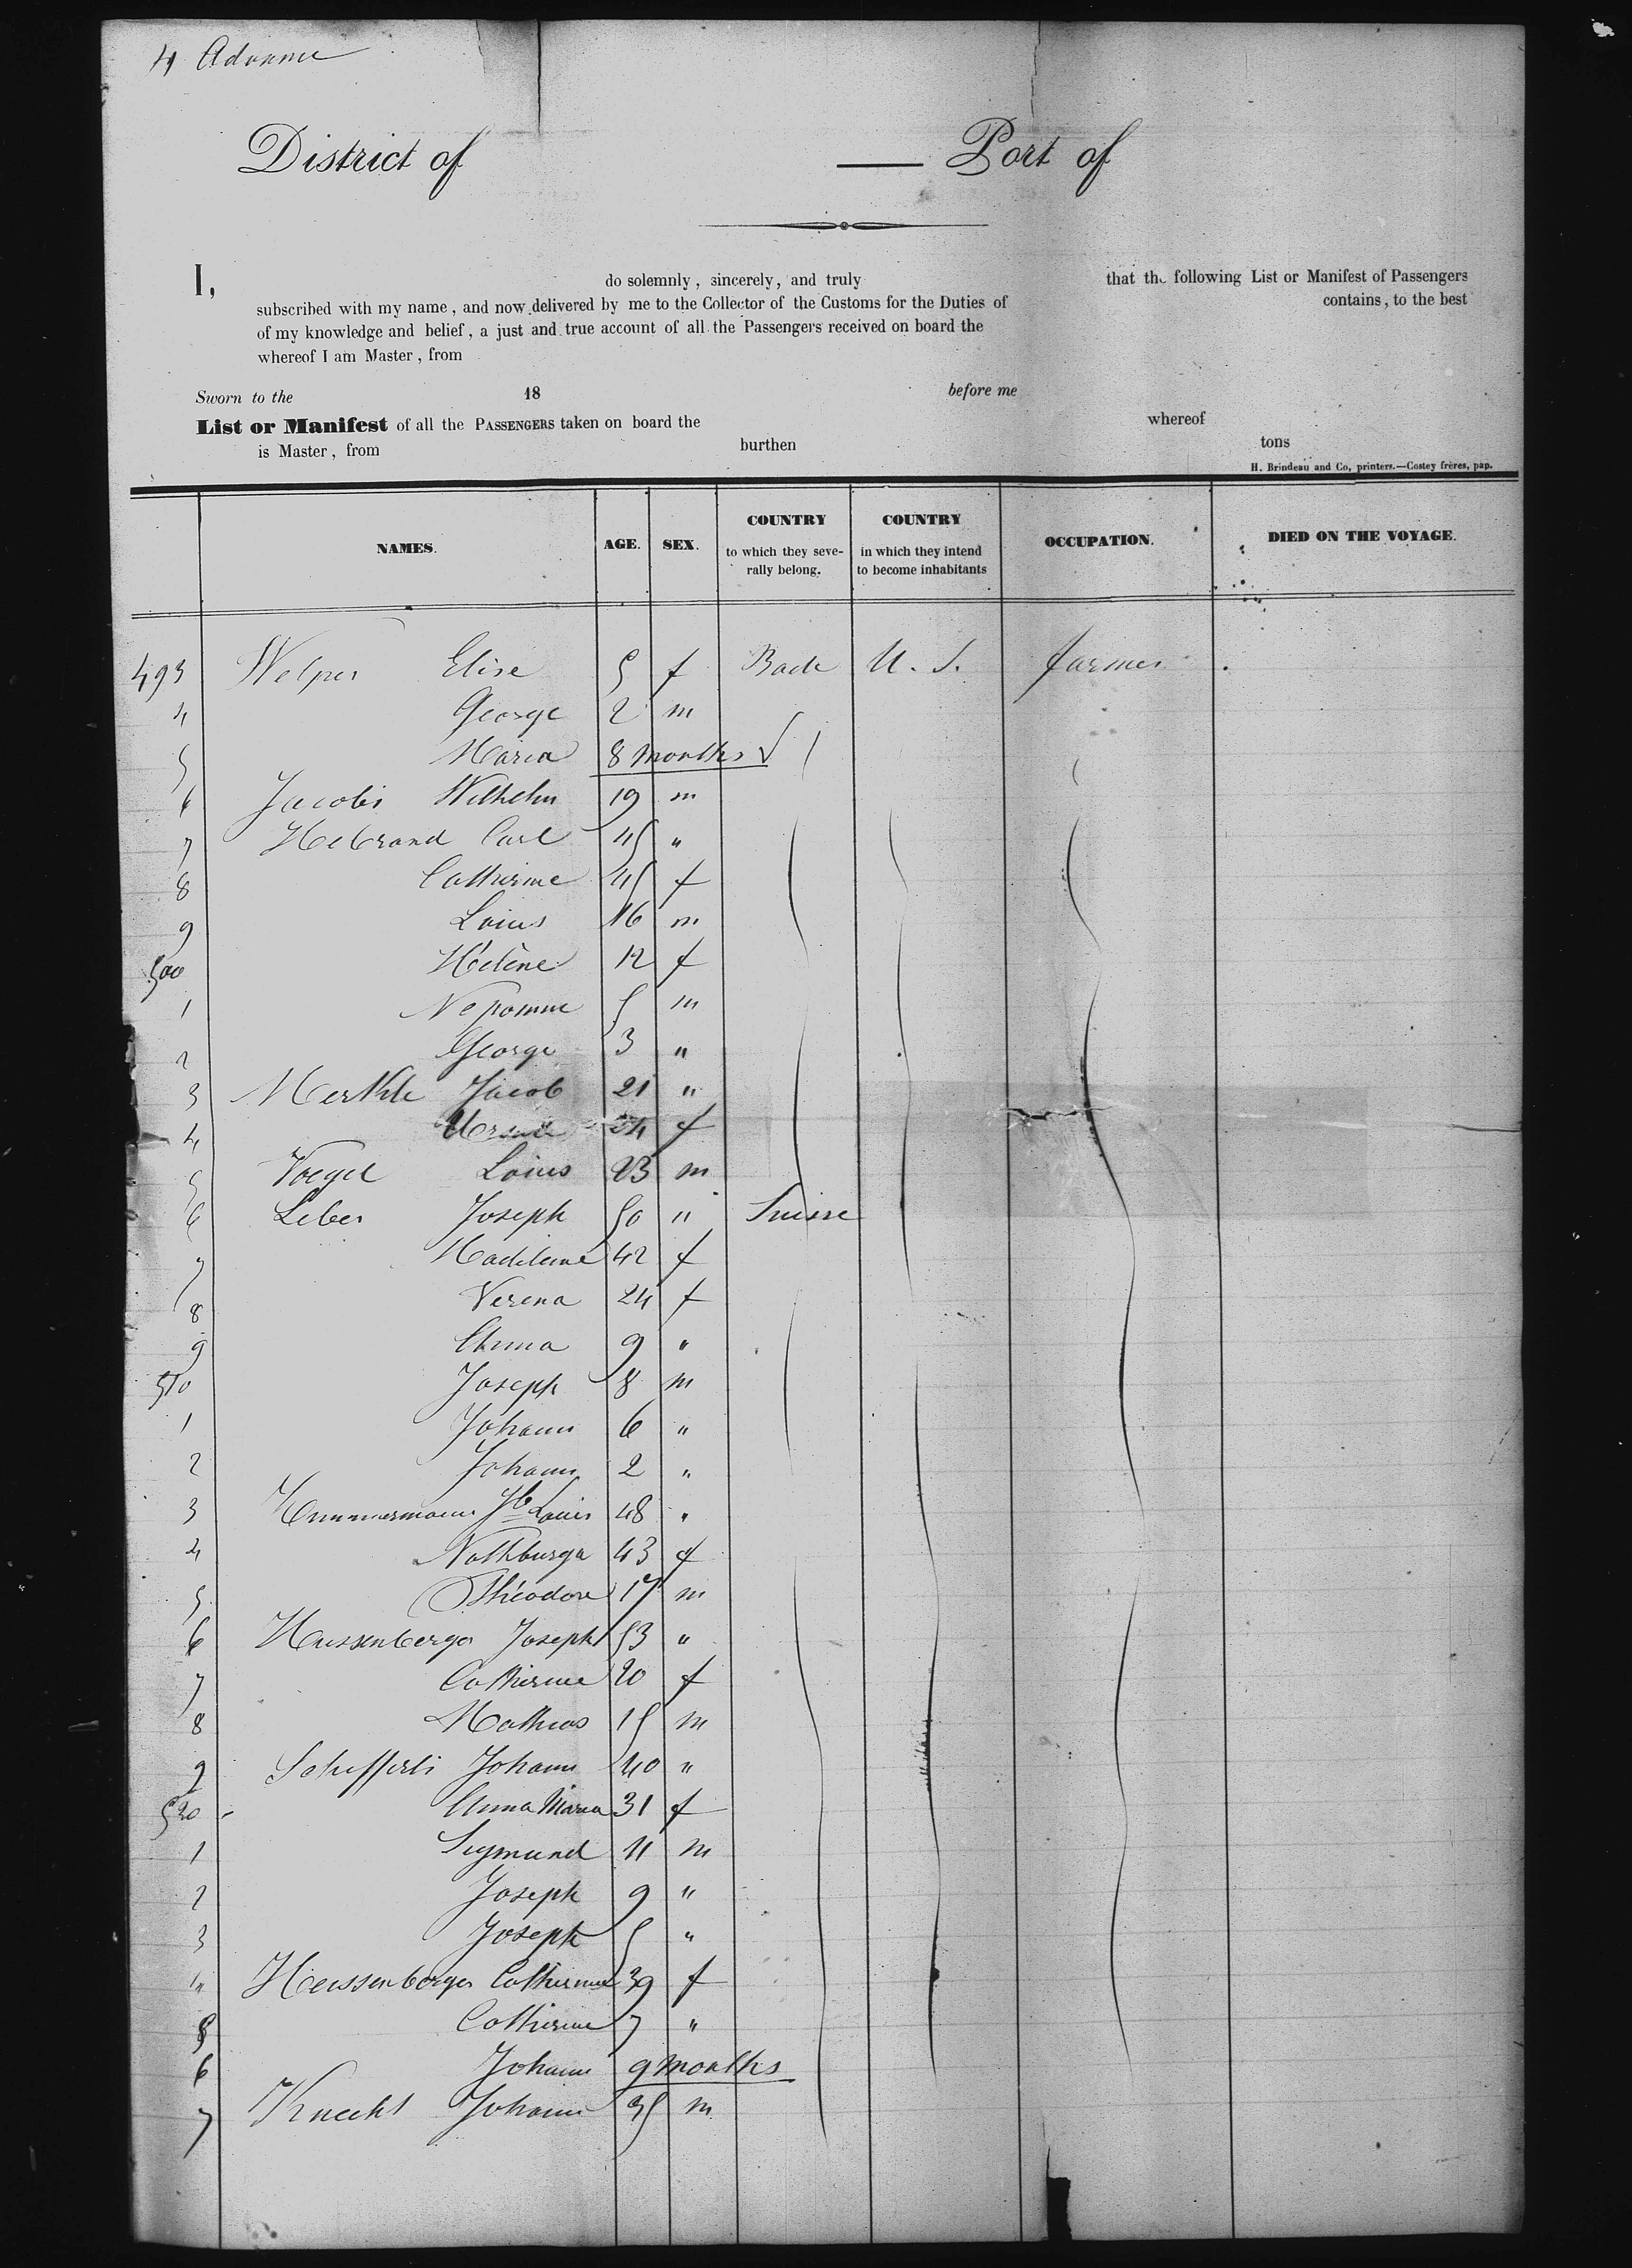 4
District of — Port of
I, do solemnly, sincerely, and truly that the following List or Manifest of Passengers
subscribed with my name, and now delivered by me to the Collector of the Customs for the Duties of contains, to the best
of my knowledge and belief, a just and true account of all the Passengers received on board the
whereof I am Master, from
Sworn to the 18 before me
List or Manifest of all the PASSENGERS taken on board the whereof
is Master, from burthen tons
H. Brindeau and Co, printers.—Costey frères, pap.
NAMES. AGE. SEX. COUNTRY to which they severally belong. COUNTRY in which they intend to become inhabitants OCCUPATION. DIED ON THE VOYAGE.
493 Welper Elise 5 f Bade U. S. farmer
4 George 2 m
5 Maria 8 months
6 Jacobi Wilhelm 19 m
7 Hebrand Carl 45 "
8 Catherine 45 f
9 Loius 16 m
500 Hélène 12 f
1 5 m
2 George 3 "
3 Merkle Jacob 21 "
4 24 f
5 Voegel Loius 23 m
6 Leber Joseph 50 " Suisse
7 Madeleine 42 f
8 Verena 24 f
9 Anna 9 "
510 Joseph 8 m
1 Johann 6 "
2 Johann 2 "
3 Louis 48 "
4 Nothburga 43 f
5 Théodore 17 m
6 Joseph 53 "
7 Catherine 20 f
8 Mathias 15 m
9 Schefferli Johann 40 "
520 Anna Maria 31 f
1 Sigmund 11 m
2 Joseph 9 "
3 Joseph 5 "
4 Heussenberger Catherine 39 f
5 Catherine 7 "
6 Johann 9 months
7 Knecht Johann 35 m